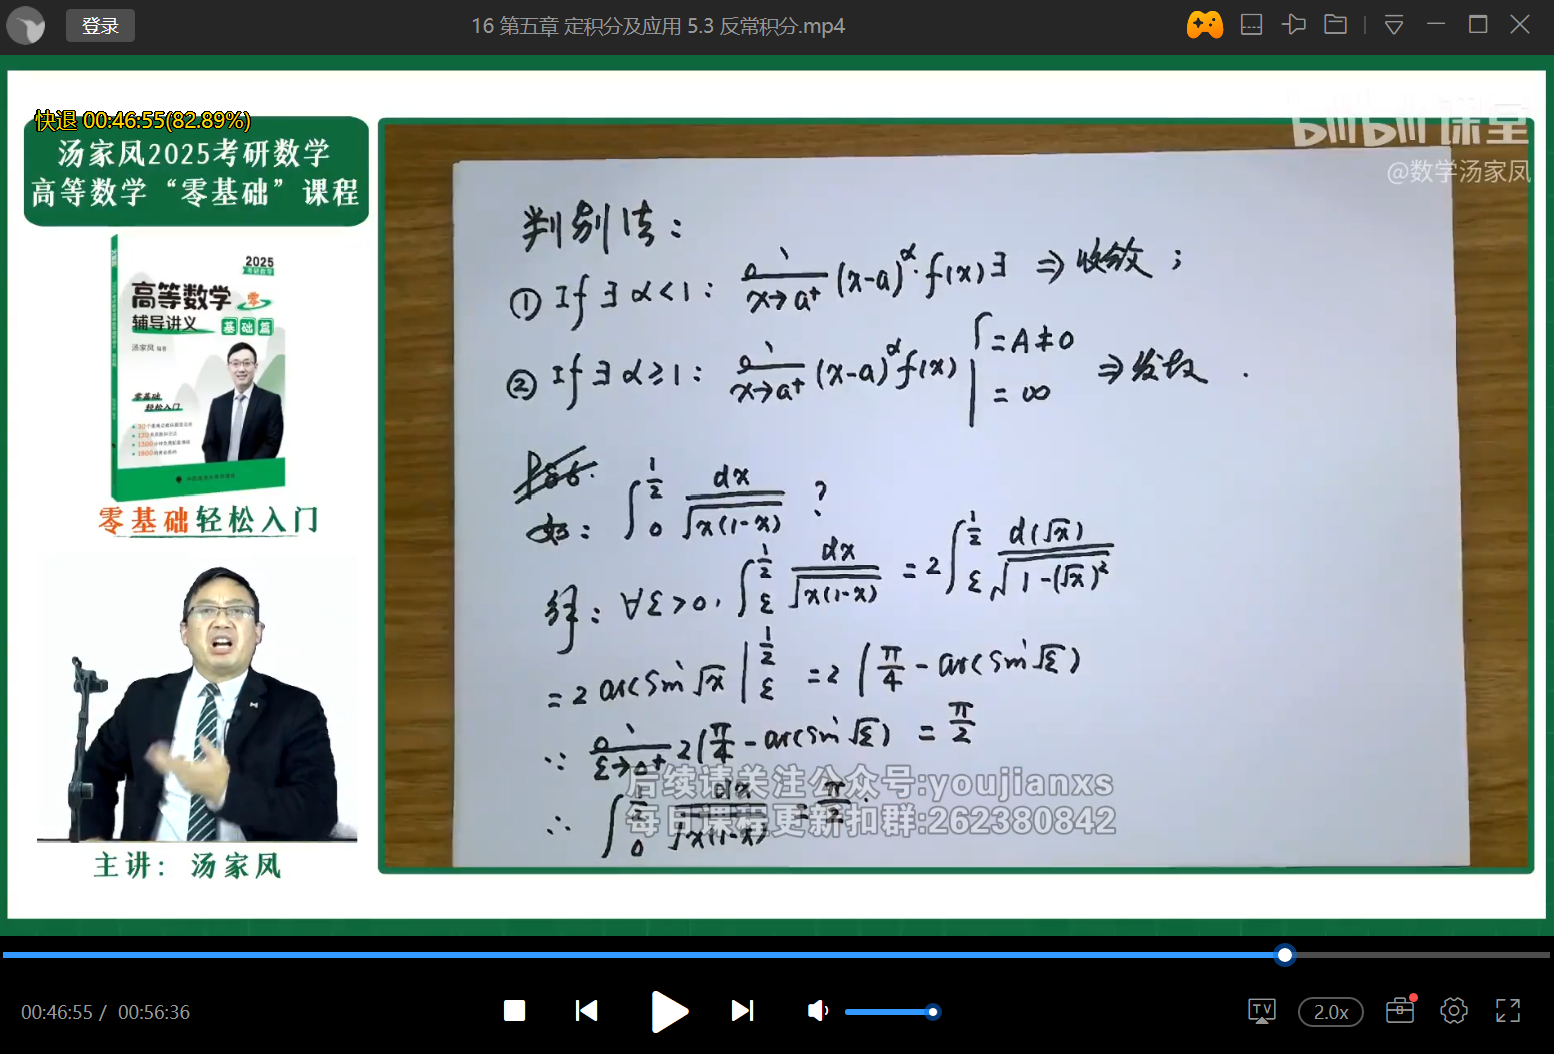 登录
16 第五章 定积分及应用 5.3 反常积分.mp4
快退 00:46:55(82.89%)
汤家凤2025考研数学
高等数学“零基础”课程
2025
考研数学
高等数学 零
辅导讲义 基础篇
汤家凤 编著
零基础
轻松入门
零基础轻松入门
主讲：汤家凤
bilibili课堂
@数学汤家凤
判别法：
① If ∃ α<1： lim x→a⁺ (x-a)^α·f(x) ∃ ⇒ 收敛；
② If ∃ α≥1： lim x→a⁺ (x-a)^α f(x) { =A≠0 =∞ ⇒ 发散.
如： ∫_0^{1/2} dx/√(x(1-x)) ?
解：∀ε>0, ∫_ε^{1/2} dx/√(x(1-x)) = 2∫_ε^{1/2} d(√x)/√(1-(√x)²)
= 2 arcsin√x |_ε^{1/2} = 2(π/4 - arcsin√ε)
∵ lim ε→0⁺ 2(π/4 - arcsin√ε) = π/2
∴ ∫_0^{1/2} dx/√(x(1-x)) = π/2.
后续请关注公众号:youjianxs
每日课程更新扣群:262380842
00:46:55 / 00:56:36
TV
2.0x